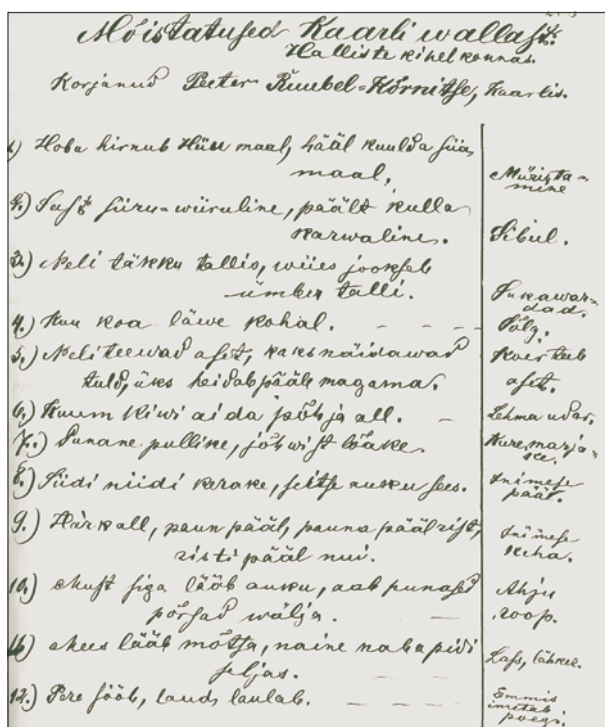 Mõistatused Kaarli wallast.
Halliste kihelkonnas.
Korjanud Peeter Ruubel-Kõrnitse, Kaarlis.
1.) Hobu hirnub Hiiu maal, hääl kuulda siia
maal,
Müristamine
2.) Sest siiru-wiiruline, päält kulla
karwaline.
Sibul.
3.) Neli täkku tallis, wiies jookseb
ümber talli.
Sukawardad.
4.) Kuu koa läwe kohal. - - -
Sõlg.
5.) Neli teewad aset, kaks näidawad
tuld, üks heidab pääle magama.
Koer teeb
aset.
6.) Kuum kiwi aida põhja all. -
Lehma udar.
7.) Punane pullike, jõhwist lõake.
Kuremarjake.
8.) Siidi niidi kerake, seitse auku sees.
Inimese
pää.
9.) Hark all, paun pääl, pauna pääl rist,
risti pääl nui.
Inimese
keha.
10.) Must siga lääb auku, aab punased
põrsad wälja. - -
Ahju
roop.
11.) Mees lääb mõtsa, naine nabapidi
seljas. - - -
Lass, lähker.
12.) Pere sööb, laud laulab. - - -
Emmis
imetab
poegi.